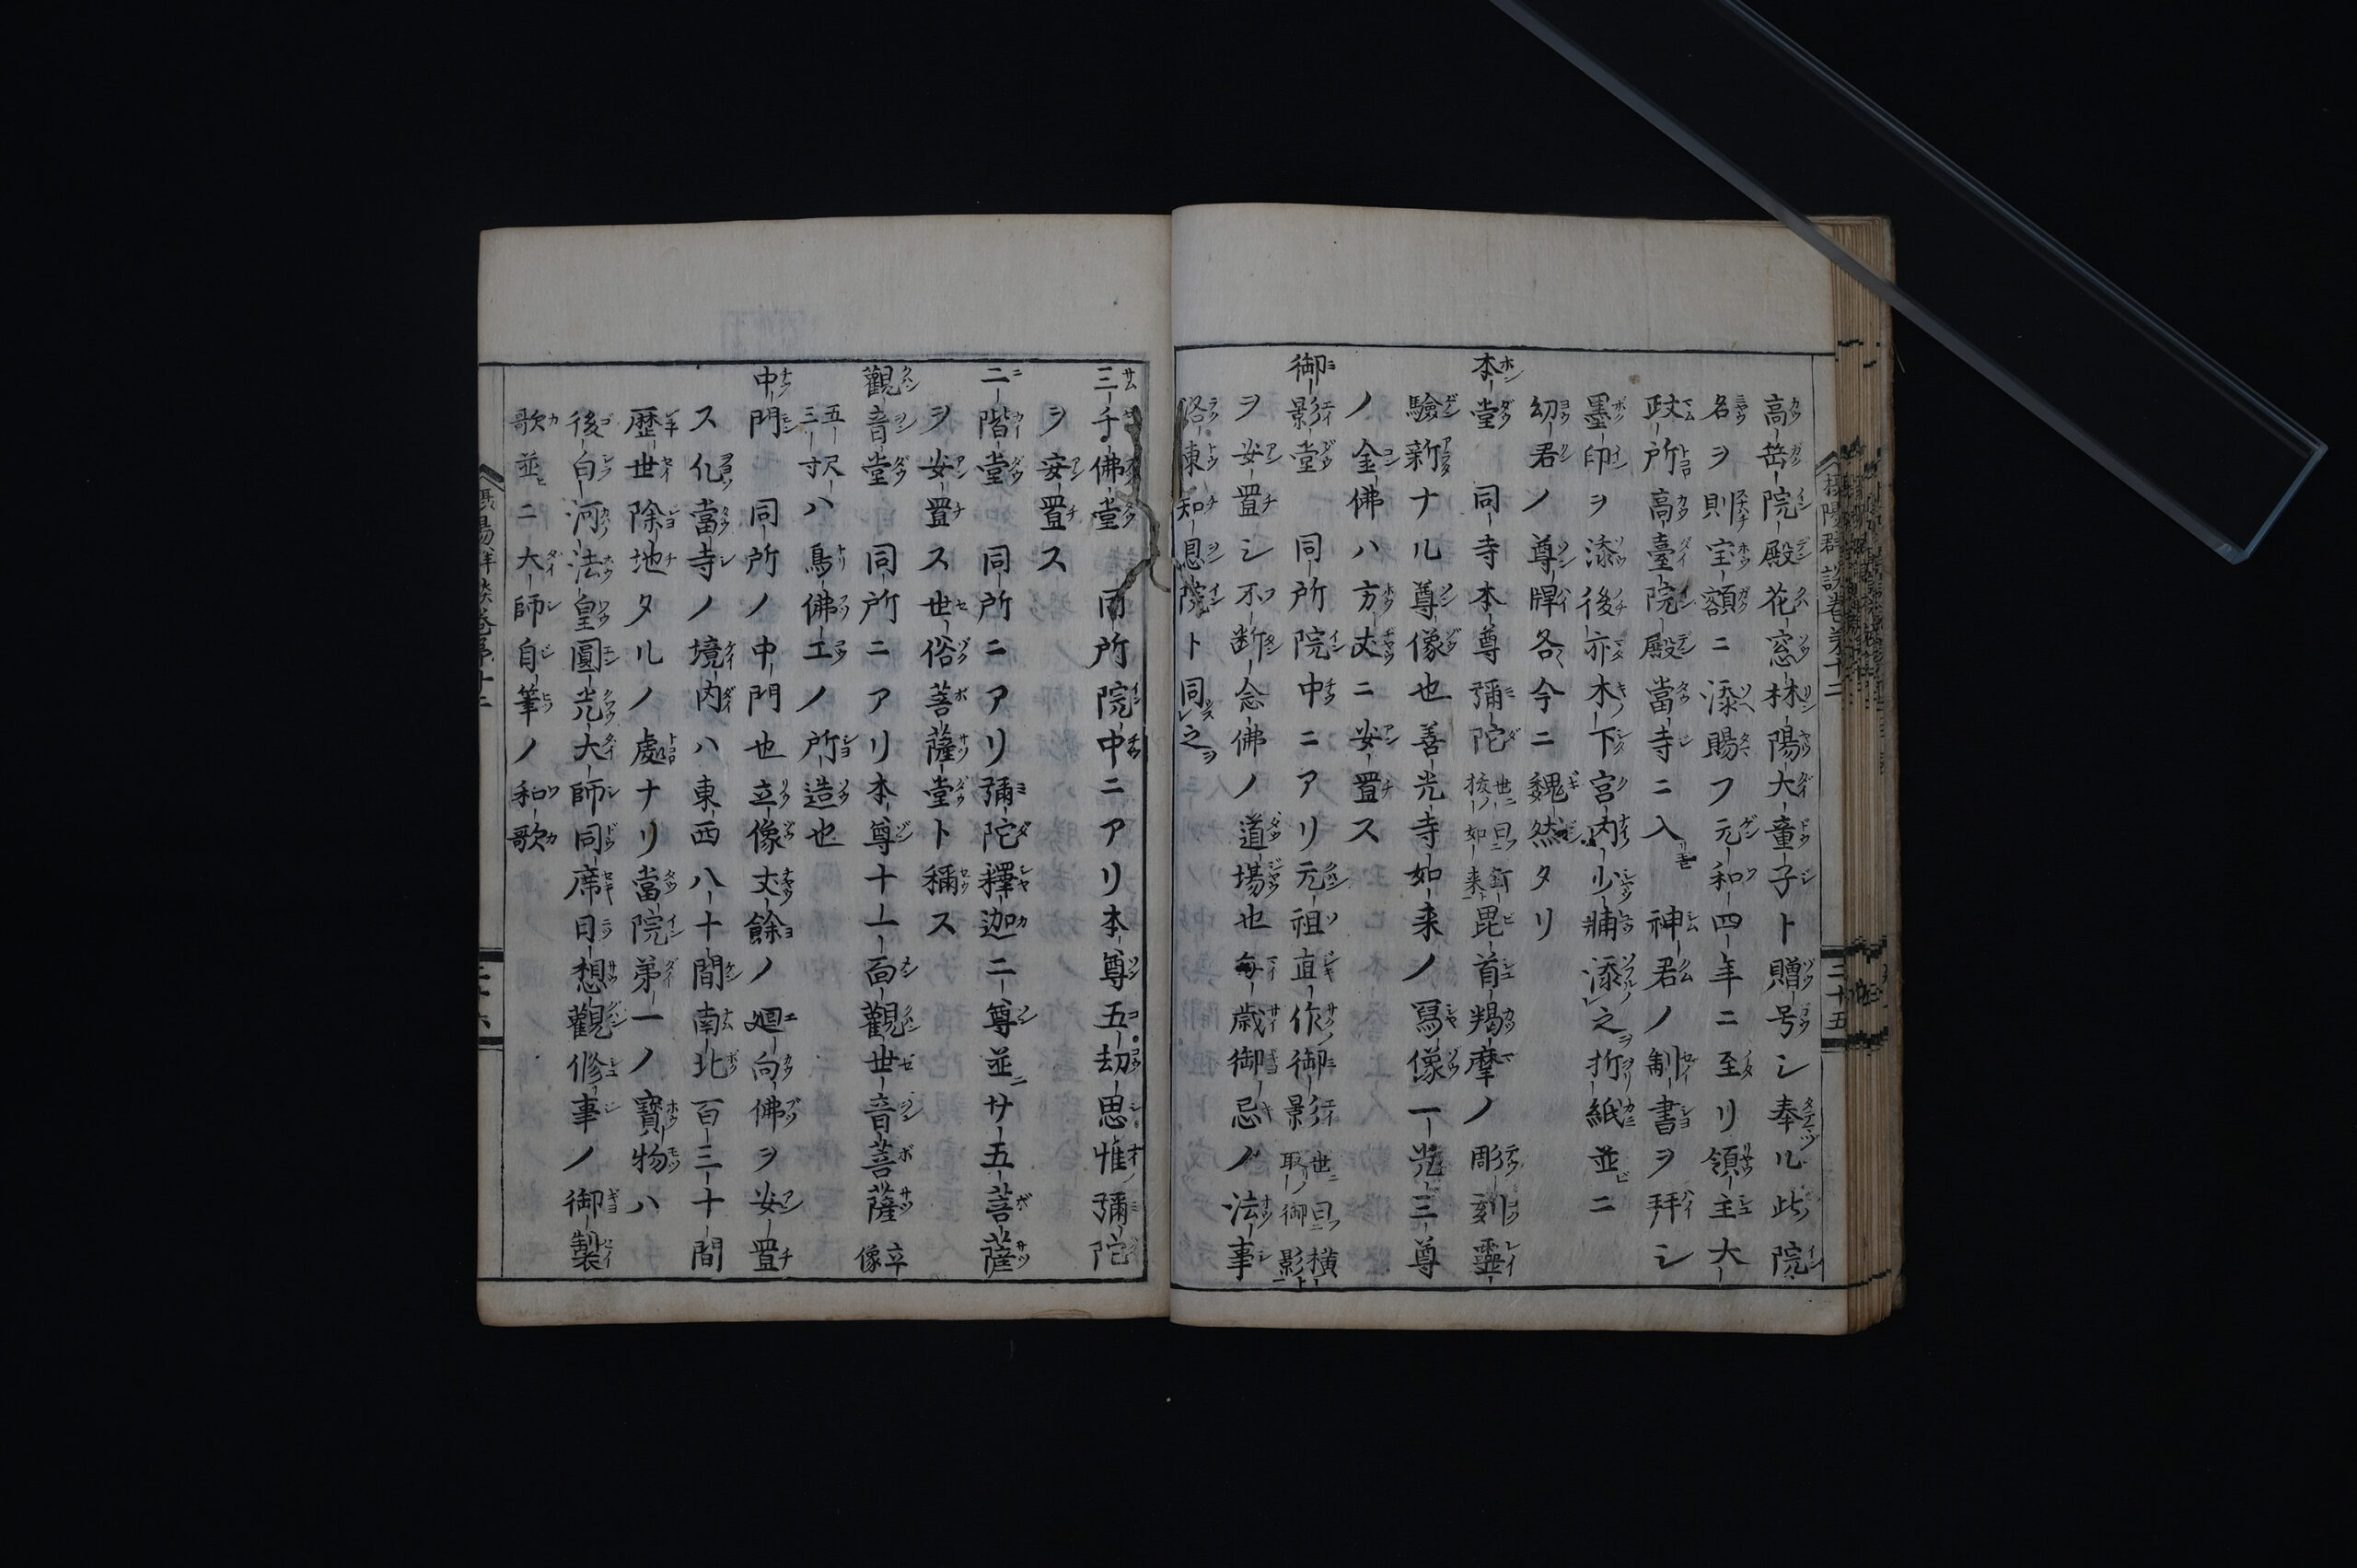 高岳院殿花窓林陽大童子ト贈号シ奉ル此院
名ヲ則宝額ニ添賜フ元和四年ニ至リ領主大
政所高臺院殿當寺ニ入 神君ノ制書ヲ拜シ
墨印ヲ添後亦木下宮内少輔添之折紙並ニ
幼君ノ尊牌各今ニ魏然タリ
本堂 同寺本尊彌陀世ニ曰釘抜ノ如来毘首羯摩ノ彫刻靈
驗新ナル尊像也善光寺如来ノ冩像一光三尊
ノ金佛ハ方丈ニ安置ス
御影堂 同所院中ニアリ元祖直作御影世ニ曰横取ノ御影
ヲ安置シ不断念佛ノ道場也毎歳御忌ノ法事
洛東知恩院ト同之
三千佛堂 同所院中ニアリ本尊五劫思惟彌陀
ヲ安置ス
二階堂 同所ニアリ彌陀釋迦二尊並サ五菩薩
ヲ安置ス世俗菩薩堂ト稱ス
觀音堂 同所ニアリ本尊十一面觀世音菩薩立像
五尺三寸ハ鳥佛工ノ所造也
中門 同所ノ中門也立像丈餘ノ廻向佛ヲ安置
ス凢當寺ノ境内ハ東西八十間南北百三十間
歴世除地タルノ處ナリ當院第一ノ寳物ハ
後白河法皇圓光大師同席日想觀修事ノ御製
歌並ニ大師自筆ノ和歌
摂陽群談巻第十二
三十五